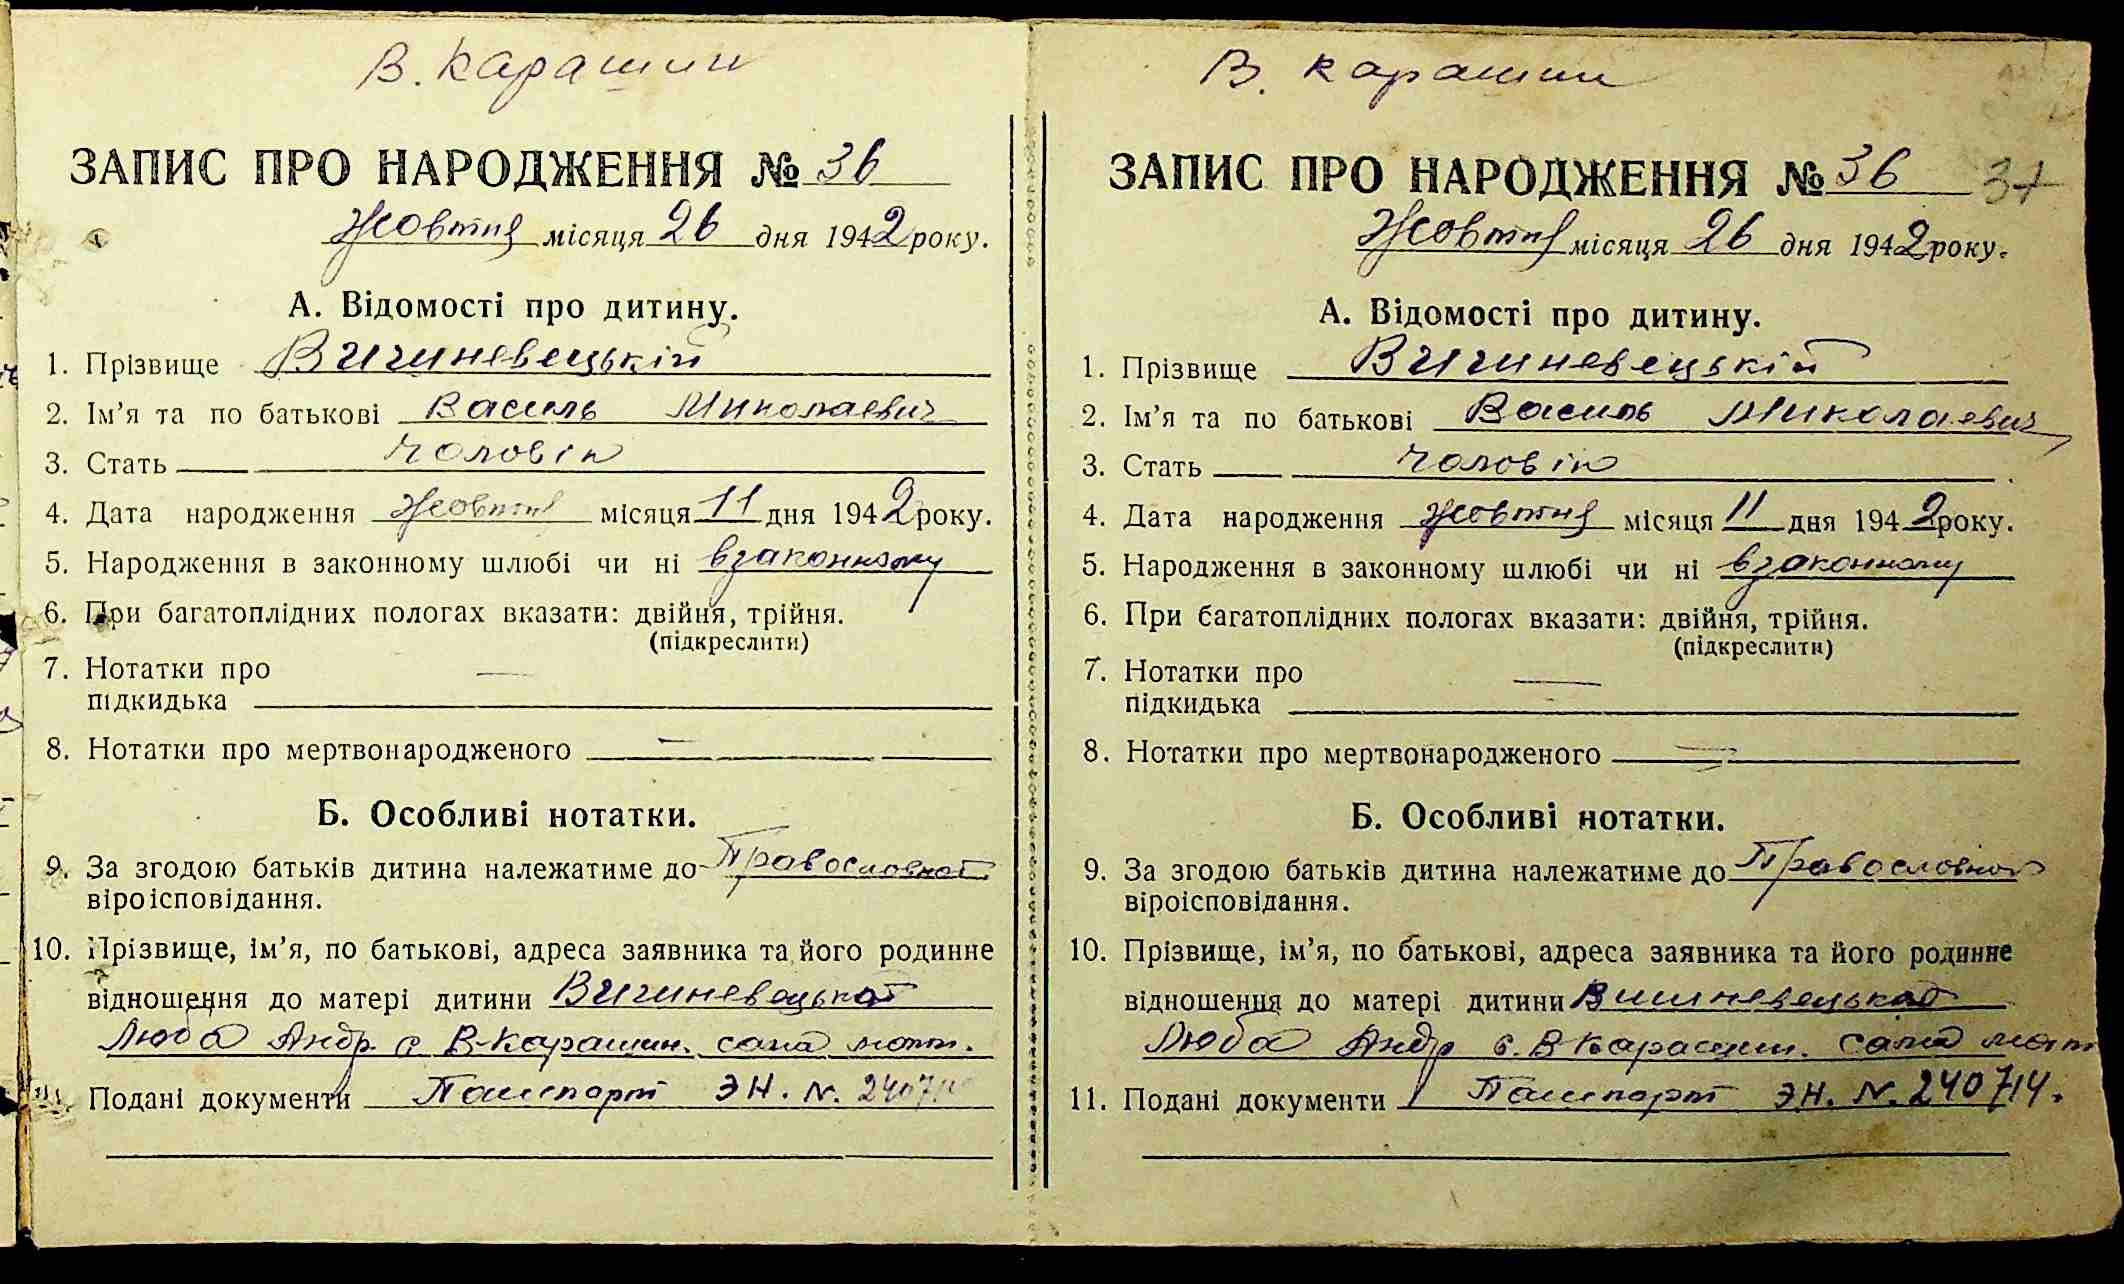 В. Карашин
ЗАПИС ПРО НАРОДЖЕННЯ № 36
Жовтня місяця 26 дня 1942 року.
А. Відомості про дитину.
1. Прізвище Вишневецький
2. Ім'я та по батькові Василь Миколаевич
3. Стать чоловік
4. Дата народження Жовтня місяця 11 дня 1942 року.
5. Народження в законному шлюбі чи ні в законному
6. При багатоплідних пологах вказати: двійня, трійня.
(підкреслити)
7. Нотатки про —
підкидька
8. Нотатки про мертвонародженого —
Б. Особливі нотатки.
9. За згодою батьків дитина належатиме до Православної
віроісповідання.
10. Прізвище, ім'я, по батькові, адреса заявника та його родинне
відношення до матері дитини Вишневецька
Люба Андр. с В-Карашин. сама мати.
Подані документи Пашпорт ЭН. N.
В. Карашин
ЗАПИС ПРО НАРОДЖЕННЯ № 36 37
Жовтня місяця 26 дня 1942 року.
А. Відомості про дитину.
1. Прізвище Вишневецький
2. Ім'я та по батькові Василь Миколаевич
3. Стать чоловік
4. Дата народження Жовтня місяця 11 дня 1942 року.
5. Народження в законному шлюбі чи ні в законному
6. При багатоплідних пологах вказати: двійня, трійня.
(підкреслити)
7. Нотатки про —
підкидька
8. Нотатки про мертвонародженого —
Б. Особливі нотатки.
9. За згодою батьків дитина належатиме до Православної
віроісповідання.
10. Прізвище, ім'я, по батькові, адреса заявника та його родинне
відношення до матері дитини Вишневецька
Люба Андр с. В Карашин. сама мати
11. Подані документи Пашпорт ЭН. N. 240714.